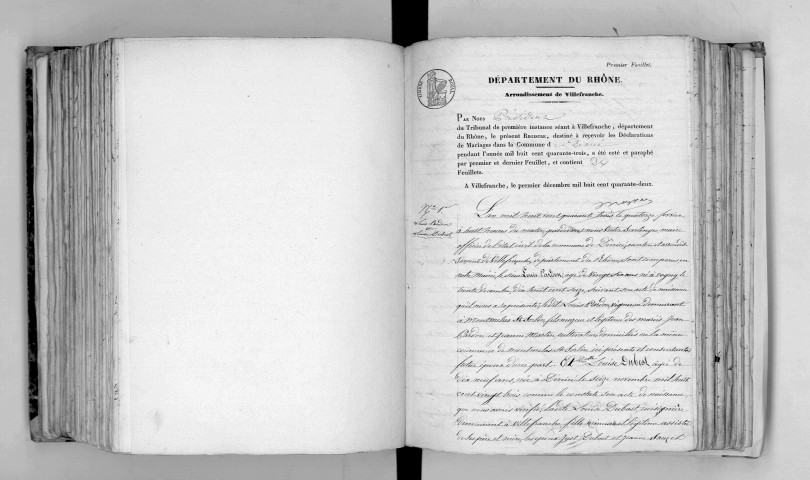 Premier Feuillet.
DÉPARTEMENT DU RHÔNE.
Arrondissement de Villefranche.
PAR NOUS Président
du Tribunal de première instance séant à Villefranche, département
du Rhône, le présent REGISTRE, destiné à recevoir les Déclarations
de Mariages dans la Commune d
pendant l'année mil huit cent quarante-trois, a été coté et paraphé
par premier et dernier Feuillet, et contient
Feuillets.
A Villefranche, le premier décembre mil huit cent quarante-deux.
L'an mil huit cent quarante trois le quatorze
à huit heures du matin, pardevant nous maire
officier de l'état civil de la commune de Denicé, canton et arrondis
sement de Villefranche, département du Rhône, sont comparus en
notre Mairie, le sieur Louis Pardon, agé de vingt six ans né à
trente mil huit cent seize, suivant son acte de naissance
qu'il nous a représenté, ledit Louis Pardon, vigneron demeurant
à Montmelas St Sorlin fils majeur et légitime des mariés Jean
Pardon et Jeanne Martin, cultivateurs domiciliés en la même
commune de Montmelas St Sorlin ici présents et consentants
futur époux d'une part. Et Louise Dubost agée de
dix neuf ans, née à Denicé le seize novembre mil huit
cent vingt trois comme le constate son acte de naissance
que nous avons vérifié, ladite Louise Dubost
demeurant à Villefranche fille mineure et légitime assistée
de ses père et mère, Dubost et Jeanne